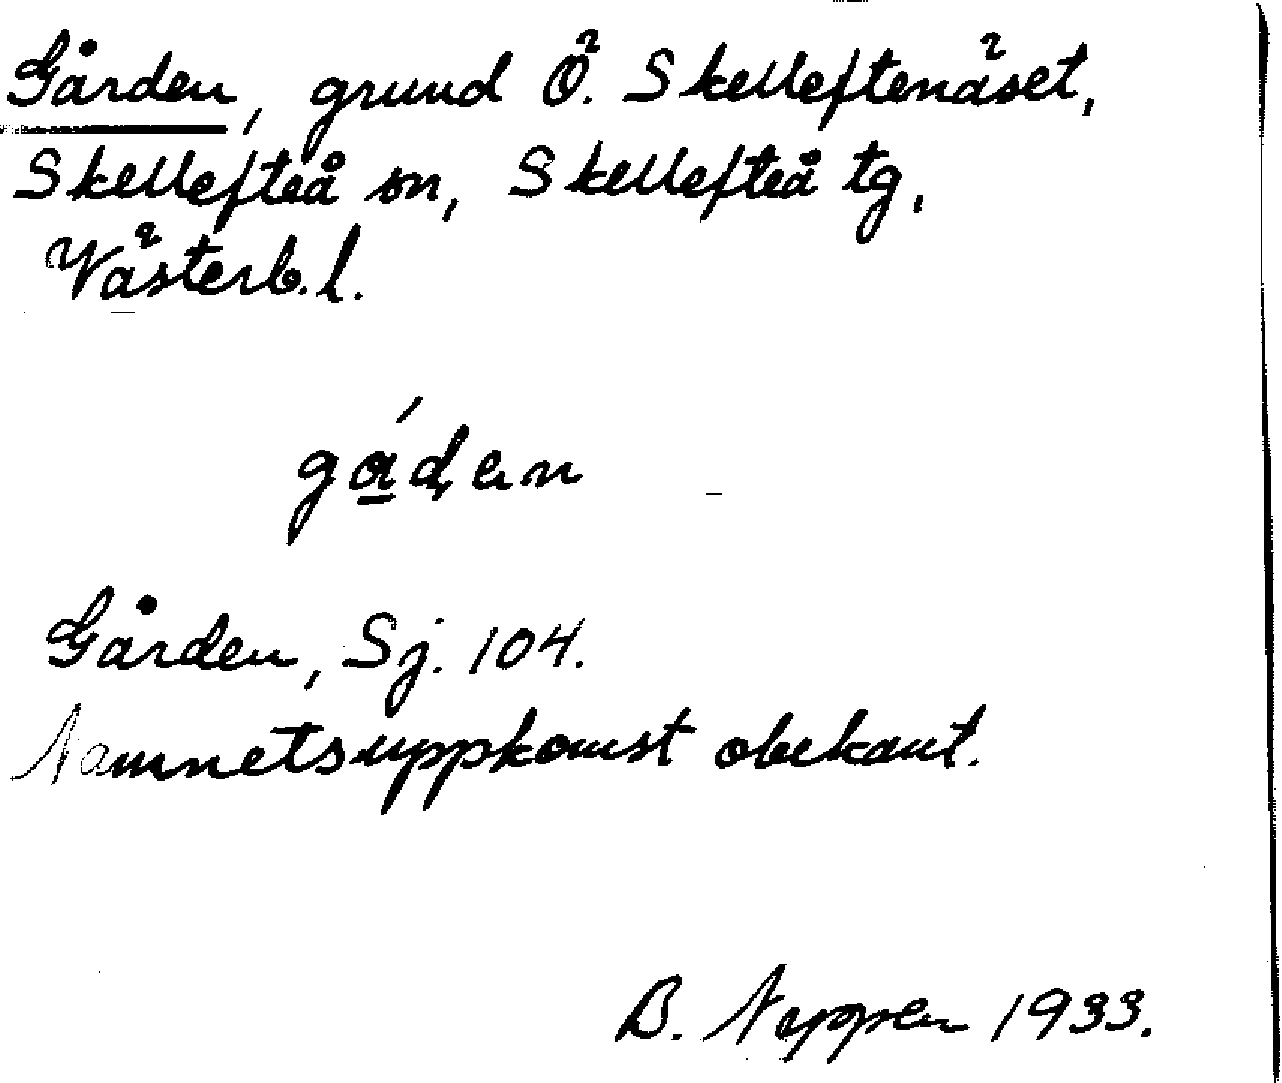 Gården, grund Ö. Skelleftenäset,
Skellefteå sn, Skellefteå tg,
Västerb. l.
gá̱ḍen
Gården, Sj. 104.
Namnetsuppkomst obekant.
B. 1933.